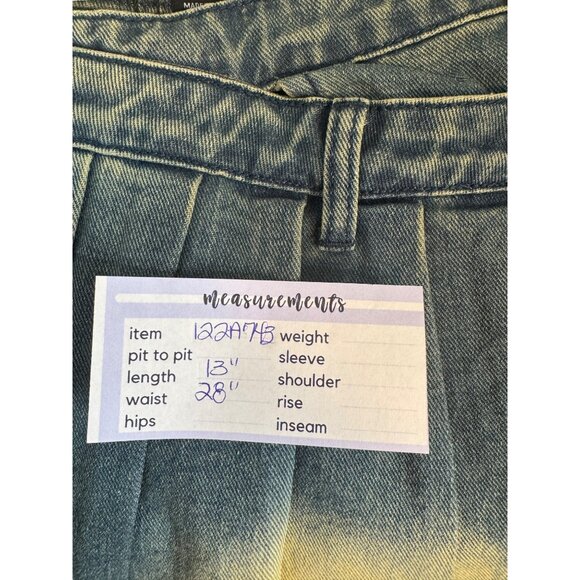 MADE
measurements
item 122A743 weight
pit to pit sleeve
length 13" shoulder
waist 28" rise
hips inseam